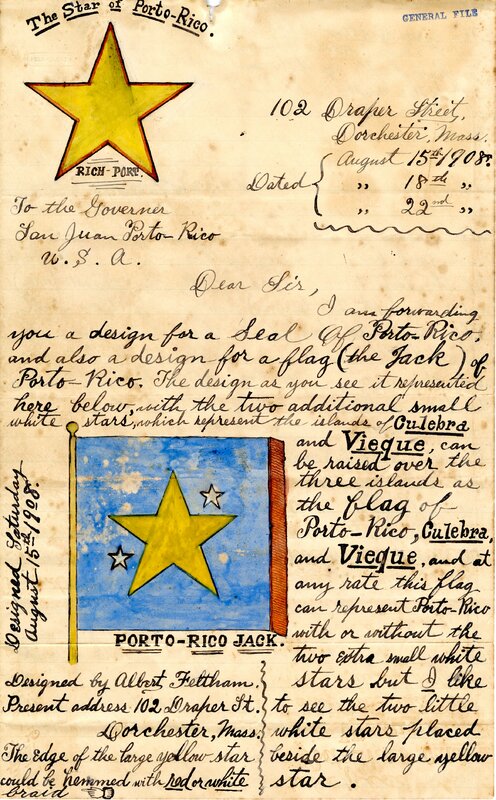 The Star of Porto-Rico.
GENERAL FILE
RICH-PORT.
102 Draper Street,
Dorchester, Mass.
Dated { August 15th 1908.
„ 18th „
„ 22nd „
To the Governer
San Juan Porto-Rico
U. S. A.
Dear Sir,
I am forwarding
you a design for a Seal Of Porto-Rico.
and also a design for a flag (the Jack) of
Porto-Rico. The design as you see it represented
here below, with the two additional small
white stars, which represent the islands of Culebra
and Vieque, can
be raised over the
three islands as
the flag of
Porto-Rico, Culebra,
and Vieque, and at
any rate this flag
can represent Porto-Rico
with or without the
two Extra small white
stars but I like
to see the two little
white stars placed
beside the large yellow
star.
Designed Saturday
August 15th 1908.
PORTO-RICO JACK.
Designed by Albert Feltham.
Present address 102 Draper St.
Dorchester, Mass.
The Edge of the large yellow star
could be hemmed with red or white
braid